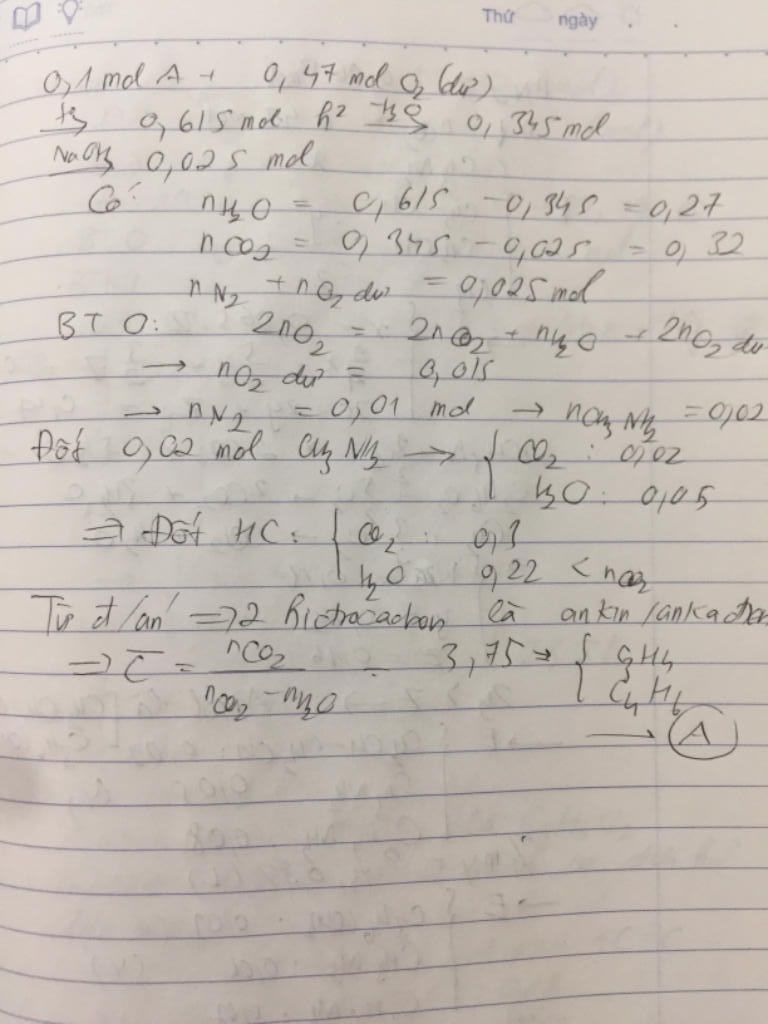 Thứ ngày
0,1 mol A + 0,47 mol O₂ (dư)
→ 0,615 mol h² –H₂O→ 0,345 mol
NaOH→ 0,025 mol
Có: nH₂O = 0,615 - 0,345 = 0,27
nCO₂ = 0,345 - 0,025 = 0,32
nN₂ + nO₂ dư = 0,025 mol
BT O: 2nO₂ = 2nCO₂ + nH₂O + 2nO₂ dư
→ nO₂ dư = 0,015
→ nN₂ = 0,01 mol → nCH₃NH₂ = 0,02
Đốt 0,02 mol CH₃NH₂ → { CO₂ : 0,02
H₂O : 0,05
⇒ Đốt HC : { CO₂ : 0,3
H₂O 0,22 < nCO₂
Từ đ/án ⇒ 2 hiđrocacbon là ankin/ankađien
⇒ C̅ = nCO₂ / (nCO₂ - nH₂O) = 3,75 → { C₃H₄
C₄H₆
→ A